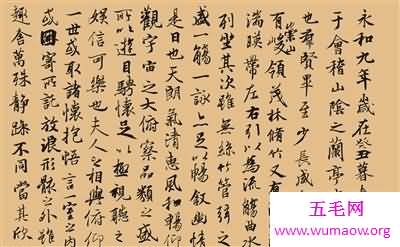 永和九年歲在癸丑暮
于會稽山陰之蘭亭
也羣賢畢至少長咸
崇山
有峻領茂林脩竹又有
湍暎帶左右引以為流觴曲水
列坐其次雖無絲竹管弦之
盛一觴一詠亦足以暢敘幽情
是日也天朗氣清惠風和暢仰
觀宇宙之大俯察品類之盛
所以遊目騁懷足以極視聽之
娛信可樂也夫人之相與俯仰
一世或取諸懷抱悟言一室之內
或因寄所託放浪形骸之外雖
趣舍萬殊靜躁不同當其欣
五毛网
www.wumaow.org